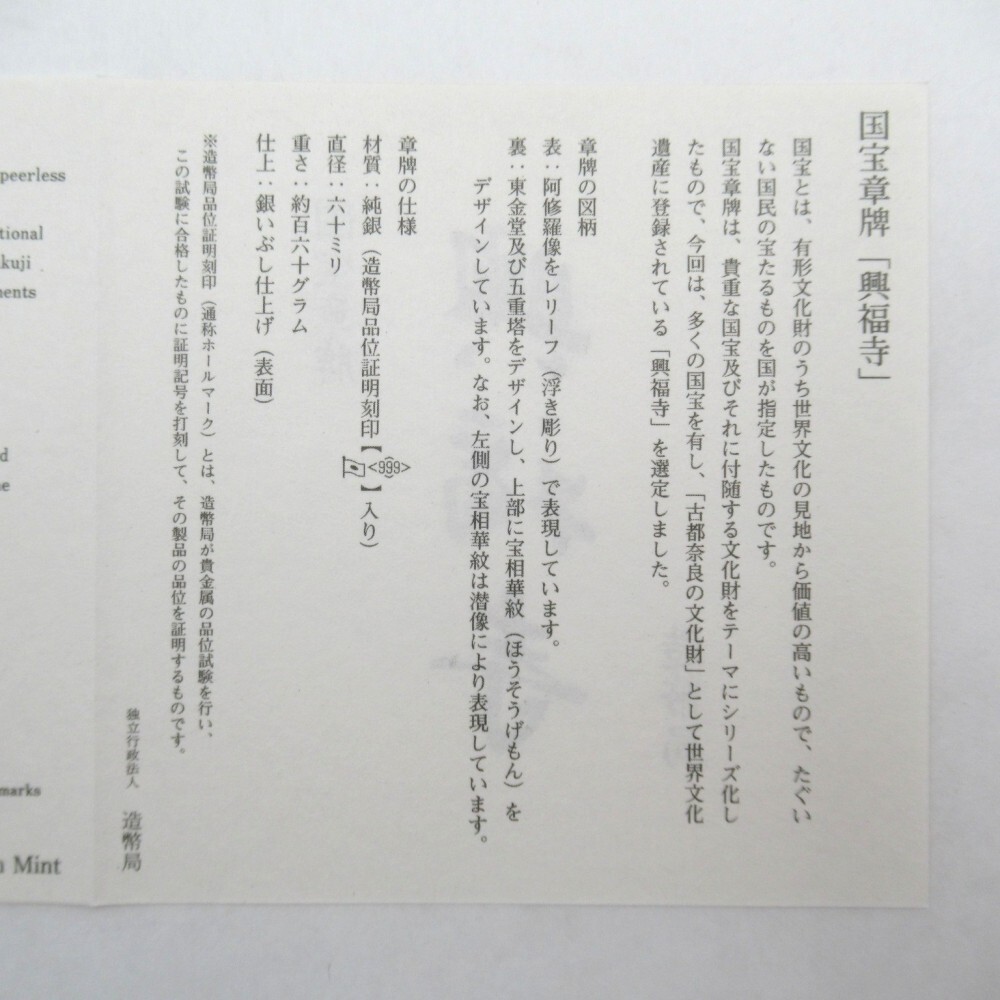 国宝章牌「興福寺」
国宝とは、有形文化財のうち世界文化の見地から価値の高いもので、たぐい
ない国民の宝たるものを国が指定したものです。
国宝章牌は、貴重な国宝及びそれに付随する文化財をテーマにシリーズ化し
たもので、今回は、多くの国宝を有し、「古都奈良の文化財」として世界文化
遺産に登録されている「興福寺」を選定しました。
章牌の図柄
表：阿修羅像をレリーフ（浮き彫り）で表現しています。
裏：東金堂及び五重塔をデザインし、上部に宝相華紋（ほうそうげもん）を
デザインしています。なお、左側の宝相華紋は潜像により表現しています。
章牌の仕様
材質：純銀（造幣局品位証明刻印【<999>】入り）
直径：六十ミリ
重さ：約百六十グラム
仕上：銀いぶし仕上げ（表面）
※造幣局品位証明刻印（通称ホールマーク）とは、造幣局が貴金属の品位試験を行い、
この試験に合格したものに証明記号を打刻して、その製品の品位を証明するものです。
独立行政法人 造幣局
peerless
tional
kuji
ments
d
ne
marks
n Mint